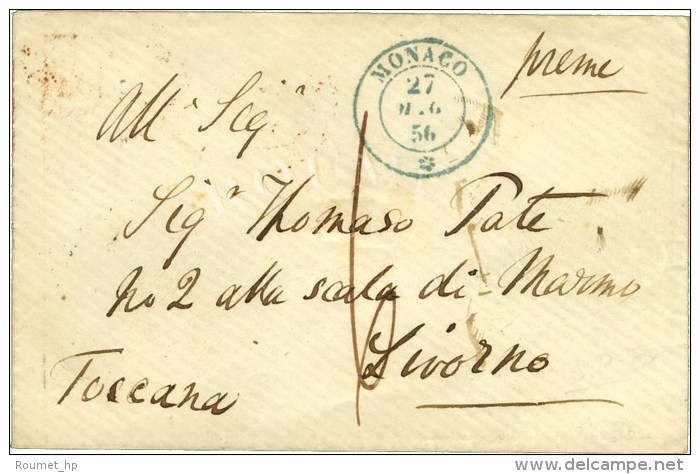 MONACO
27
56
preme
All' Sigʳ
Sigʳ Thomaso Pate
No 2 alla scala di Marmo
Livorno
Toscana
Roumet_hp
delcampe.net